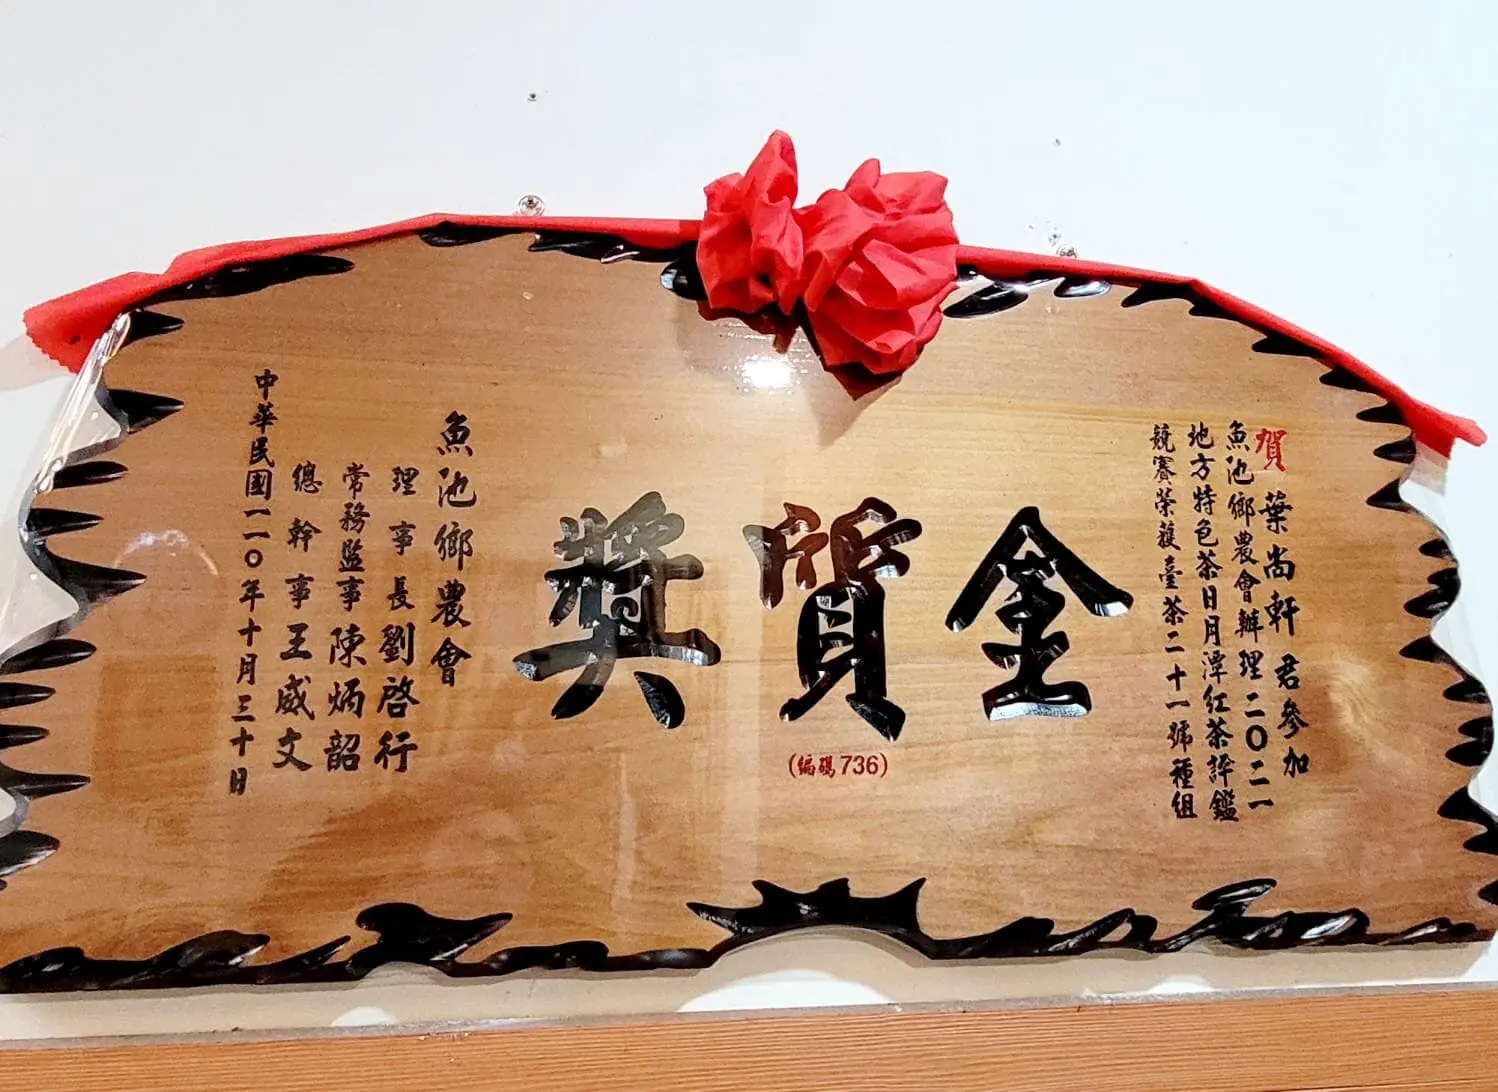 賀 葉尚軒 君參加
魚池鄉農會辦理二〇二一
地方特色茶日月潭紅茶評鑑
競賽榮獲臺茶二十一號種組
金質獎
(編碼736)
魚池鄉農會
理事長劉啓行
常務監事陳炳韶
總幹事王威文
中華民國一一〇年十月三十日